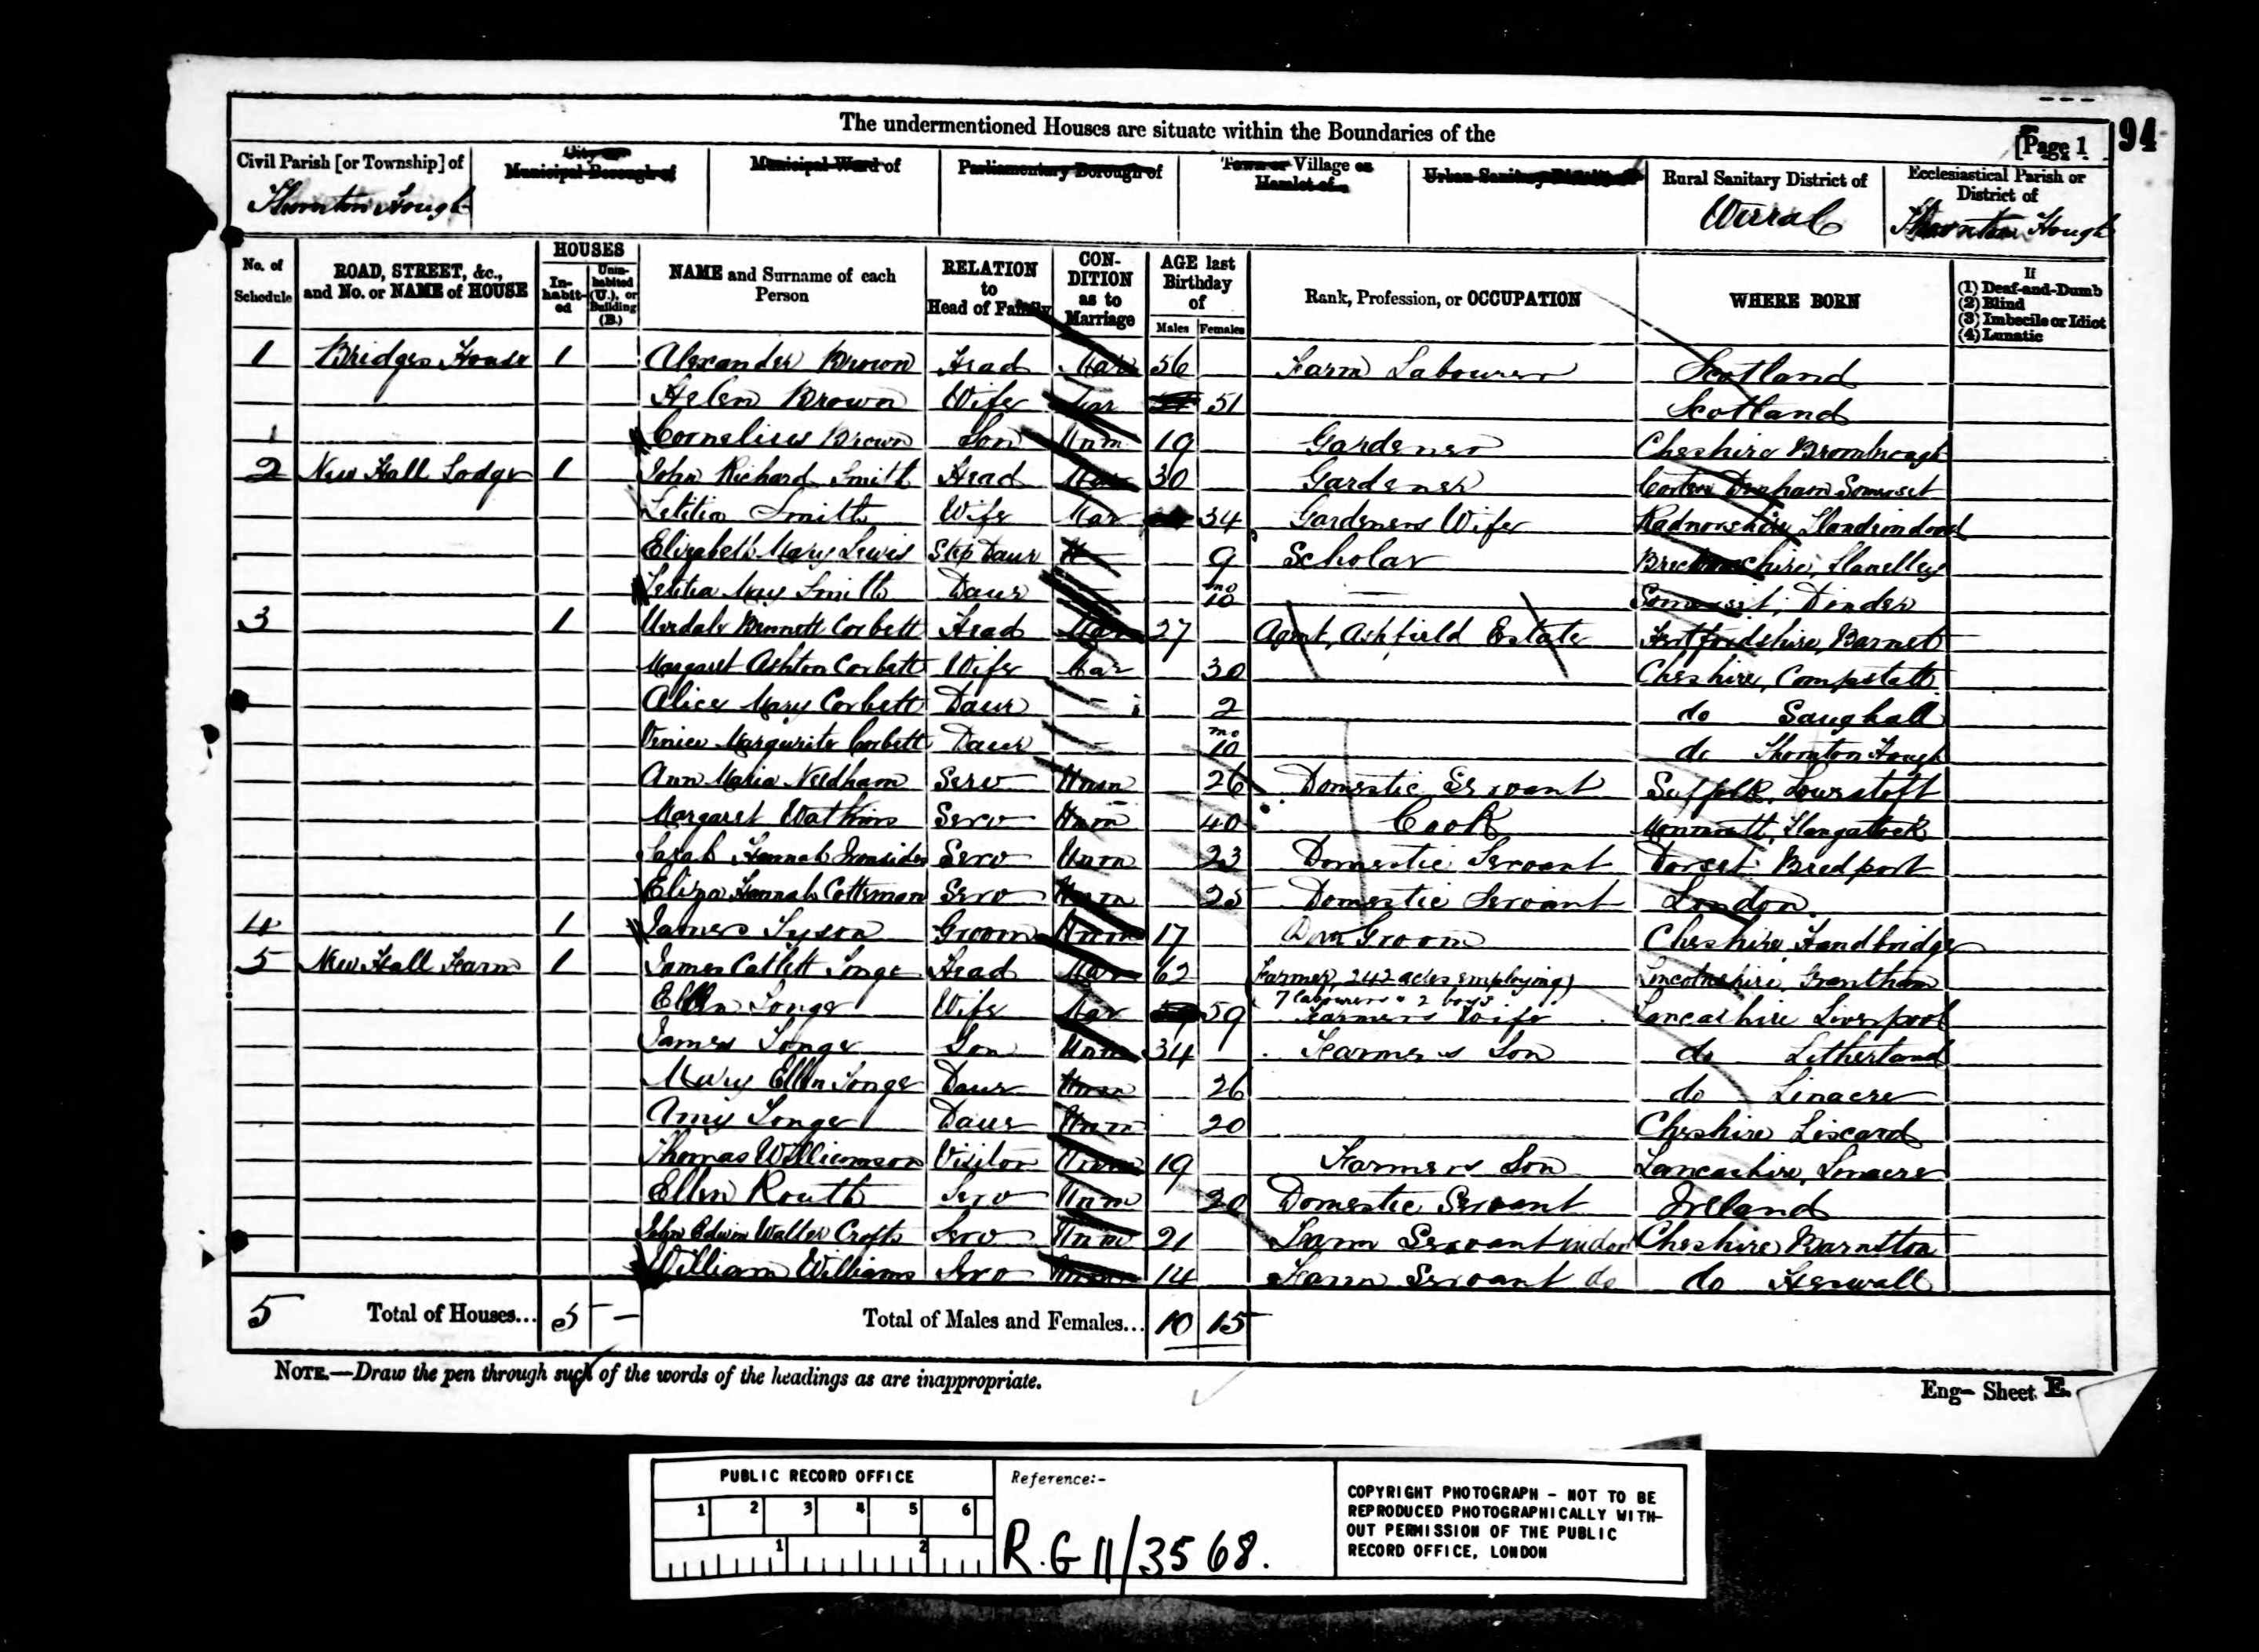 The undermentioned Houses are situate within the Boundaries of the
[Page 1 94
Civil Parish [or Township] of City or Municipal Borough of Municipal Ward of Parliamentary Borough of Town or Village or Hamlet of Urban Sanitary District of Rural Sanitary District of Ecclesiastical Parish or District of
Thornton Hough Wirral Thornton Hough
No. of Schedule ROAD, STREET, &c., and No. or NAME of HOUSE HOUSES In-habit-ed Unin-habited (U.), or Building (B.) NAME and Surname of each Person RELATION to Head of Family CON-DITION as to Marriage AGE last Birthday of Males Females Rank, Profession, or OCCUPATION WHERE BORN If (1) Deaf-and-Dumb (2) Blind (3) Imbecile or Idiot (4) Lunatic
1 Bridges House 1 Alexander Brown Head Mar 56 Farm Labourer Scotland
Helen Brown Wife Mar 51 Scotland
Cornelius Brown Son Unm 19 Gardener Cheshire Brombrough
2 New Hall Lodge 1 John Richard Smith Head Mar 30 Gardener Somerset
Letitia Smith Wife Mar 34 Gardeners Wife Radnorshire, Llandrindod
Elizabeth Mary Lewis Step Daur 9 Scholar Llanelley
Letitia May Smith Daur mo 10 Somerset, Dinder
3 1 Bennett Corbett Head Mar 27 Agent, Ashfield Estate Hertfordshire, Barnet
Margaret Ashton Corbett Wife Mar 30 Cheshire, Compstall
Alice Mary Corbett Daur 2 do Saughall
Marguerite Corbett Daur mo 10 do Thornton Hough
Ann Maria Needham Serv Unm 26 Domestic Servant Suffolk, Lowestoft
Margaret Watkins Serv Unm 40 Cook Monmouth, Llangattock
Sarah Hannah Ironsides Serv Unm 23 Domestic Servant Dorset Bridport
Eliza Hannah Cotterman Serv Unm 25 Domestic Servant London
4 1 James Tyson Groom Unm 17 Groom Cheshire, Handbridge
5 New Hall Farm 1 James Catlett Songe Head Mar 62 Farmer, 242 acres employing Lincolnshire, Grantham
7 labourers & 2 boys
Ellen Songe Wife Mar 59 Farmers Wife Lancashire Liverpool
James Songe Son Unm 34 Farmers Son do Litherland
Mary Ellen Songe Daur Unm 26 do Linacre
Amy Songe Daur Unm 20 Cheshire Liscard
Thomas Williamson Visitor Unm 19 Farmers Son Lancashire, Linacre
Ellen Routh Serv Unm 20 Domestic Servant Ireland
John Edwin Walter Crofts Serv Unm 21 Farm Servant indoor Cheshire Barnston
William Williams Serv Unm 14 Farm Servant do do Heswall
5 Total of Houses... 5 – Total of Males and Females... 10 15
NOTE.—Draw the pen through such of the words of the headings as are inappropriate.
Eng- Sheet E.
PUBLIC RECORD OFFICE
1 2 3 4 5 6
1 2
Reference:-
R.G 11/3568.
COPYRIGHT PHOTOGRAPH - NOT TO BE
REPRODUCED PHOTOGRAPHICALLY WITH-
OUT PERMISSION OF THE PUBLIC
RECORD OFFICE, LONDON